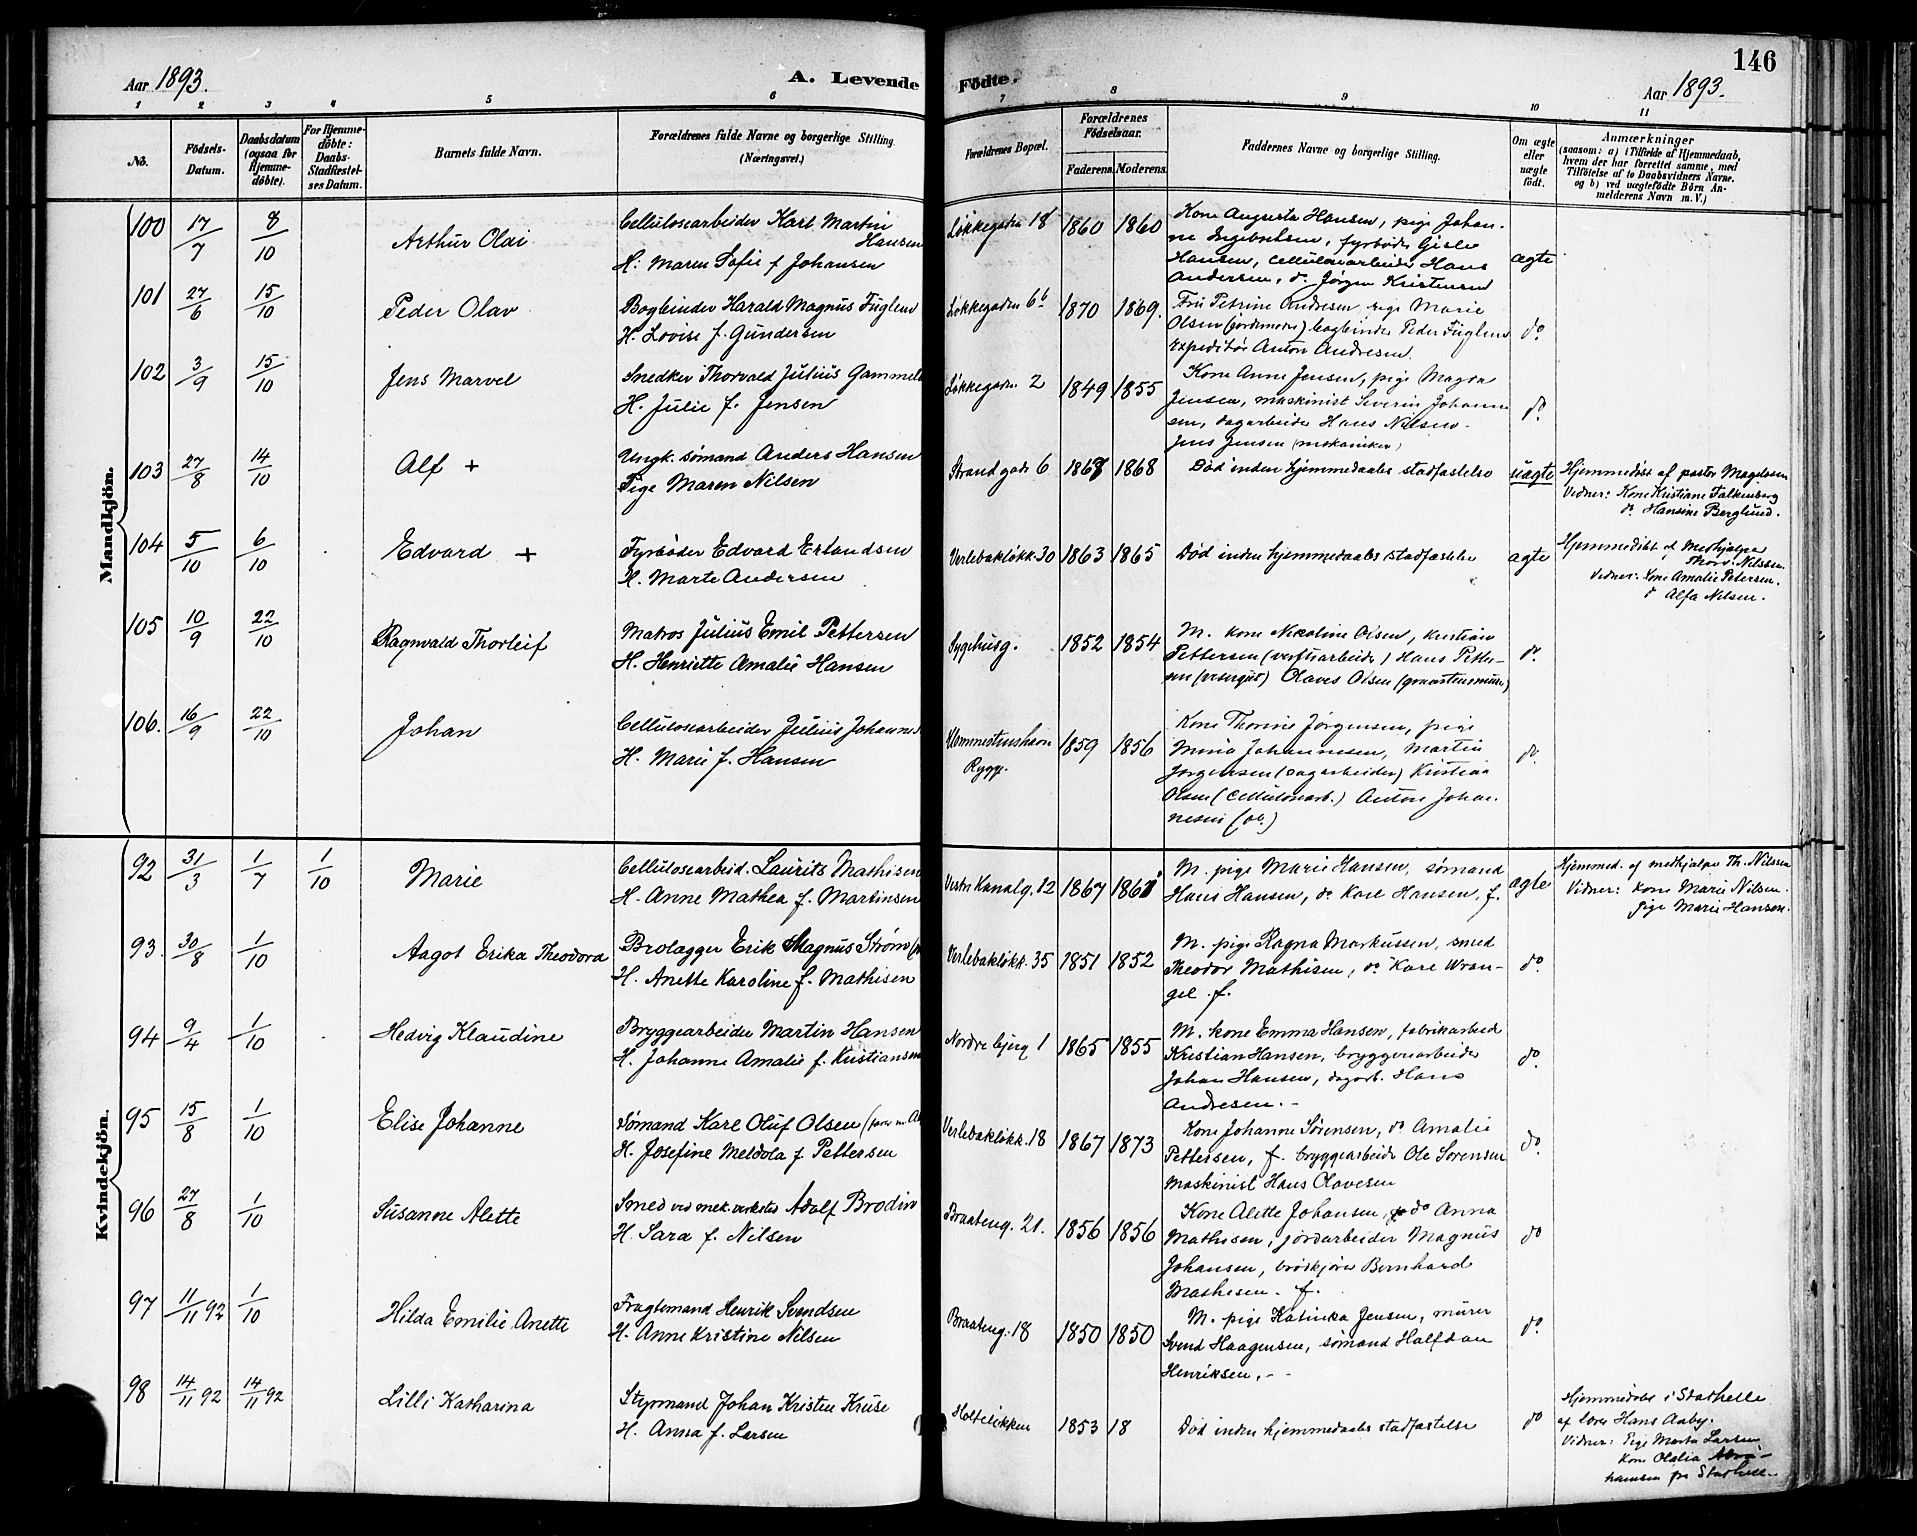 Aar 1893.
A. Levende
Födte.
146
Aar 1893.
1 2 3 4 5 6 7 8 9 10 11
No.
Födsels-
Datum.
Daabsdatum
(ogsaa for
Hjemme-
döbte).
For Hjemme-
döbte:
Daabs-
Stadfæstel-
ses Datum.
Barnets fulde Navn.
Forældrenes fulde Navne og borgerlige Stilling
(Næringsvei.)
Forældrenes Bopæl.
Forældrenes
Födselsaar.
Faderens. Moderens.
Faddernes Navne og borgerlige Stilling.
Om ægte
eller
uægte
födt.
Anmærkninger
(saasom: a) i Tilfælde af Hjemmedaab,
hvem der har forrettet samme, med
Tilföielse af to Daabsvidners Navne.
og b) ved uægtefödte Börn An-
melderens Navn m. V.)
Mandkjön.
100 17/7 8/10 Arthur Olai
Cellulosearbeider Karl Martin
Hansen
H: Maren Sofie f Johansen
Løkkegaden 18 1860 1860
Kone Augusta Hansen, pige Johan-
ne Ingebretsen, fyrbøder Gisle
Hansen, cellulosearbeider Hans
Andersen, do. Jørgen Kristensen
ægte
101 27/6 15/10 Peder Olav
Bogbinder Harald Magnus Fuglem
H. Lovise f. Gundersen
Løkkegaden 6b 1870 1869.
Fru Petrine Andresen, pige Marie
Olsen (jordemoder) bogbinder Peder Fuglem
Expeditør Anton Andresen.
do.
102 3/9 15/10 Jens Marvel
Snedker Thorvald Julius Gammel
H. Julie f. Jensen
Løkkegaden 2 1849 1855
Kone Anne Jensen, pige Magda
Jensen, maskinist Severin Johann
sen, dagarbeider Hans Nilsen
Jens Jensen (mekaniker)
do.
103 27/8 14/10 Alf +
Ungk. sømand Anders Hansen
Pige Maren Nilsen
Strandgade 6 1868 1868
Død inden hjemmedaabs stadfæstelse
uægte
Hjemmedøbt af pastor Magelssen
Vidner: Kone Kristiane Falkenberg
do. Hansine Berglund.
104 5/10 6/10 Edvard +
Fyrbøder Edvard Erlandsen
H. Marte Andersen
Verlebakløkk. 30 1863 1865
Død inden hjemmedaabs stadfæstelse
ægte
Hjemmedøbt af Medhjælper
Thorv. Nilssen.
Vidner: Kone Amalie Petersen.
do Alfa Nilsen.
105 10/9 22/10 Ragnvald Thorleif
Matros Julius Emil Pettersen
H. Henriette Amalie Hansen
Sygehusg. 1852 1854
M. kone Nicoline Olsen, Kristian
Pettersen (verftsarbeider) Hans Petter-
sen Olaves Olsen
do.
106. 16/9 22/10 Johan
Cellulosearbeider Julius Johannes
H. Marie f. Hansen
Klemmestenshavn
Rygg. 1859 1856
Kone Thorine Jørgensen, pige
Mina Johannesen, Martin
Jørgensen (dagarbeider) Kristian
Olsen (cellulosearb.) Anton Johan-
nesen (do.)
do.
Kvindekjön.
92 31/3 1/7 1/10 Marie
Cellulosearbeid. Laurits Mathisen
H. Anne Mathea f. Martinsen
Vestre Kanalg. 12 1867 1867
M. pige Marie Hansen, sømand
Hans Hansen, do. Karl Hansen, f.
ægte
Hjemmed. af medhjælper Th. Nilssen
Vidner: Kone Marie Nilsen.
Pige Marie Hansen.
93. 30/8 1/10 Aagot Erika Theodora
Brolægger Erik Magnus Strøm
H. Anette Karoline f. Mathisen
Verlebakløkk. 35 1851 1852
M. pige Ragna Markussen, smed
Theodor Mathisen, do. Karl Wran-
gel. f.
do.
94 9/4 1/10 Hedvig Klaudine
Bryggearbeider Martin Hansen
H. Johanne Amalie f. Kristiansen
Nordre bjerg 1 1865 1855
M. kone Emma Hansen, fabrikarbeid
Kristian Hansen, bryggeriarbeider
Johan Hansen, dagarb. Hans
Andresen. -
do.
95 15/8 1/10 Elise Johanne
Sømand Karl Oluf Olsen
H. Josefine Meldola f Pettersen
Verlebakløkk. 18 1867 1873
Kone Johanne Sørensen, do Amalie
Pettersen, f. bryggearbeider Ole Sørensen
Maskinist Hans Olavesen
do.
96 27/8 1/10 Susanne Alette
Smed ved mek. verksted Adolf Brodin
H. Sara f. Nilsen
Braateng. 21. 1856 1856
Kone Alette Johansen, do Anna
Mathisen, jordarbeider Magnus
Johansen, brødkjører Bernhard
Mathisen. f.
do
97 11/11 92 1/10 Hilda Emilie Anette
Fragtemand Henrik Svendsen
H. Anne Kristine Nilsen
Braateng. 18 1850 1850
M. pige Katinka Jensen, murer
Svend Haagensen, sømand Halfdan
Henriksen. - -
do.
98 14/11 92 14/11 92 Lilli Katharina
Styrmand Johan Kristen Kruse
H. Anna f. Larsen
Holteløkken 1853 18
Død inden hjemmedaabs stadfæstelse
do
Hjemmedøbt i Stathelle
af lærer Hans Aaby.
Vidner: Pige Marta Larsen
Kone Olalia Abra-
hamsen fra Stathelle